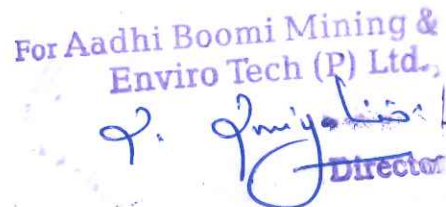 For Aadhi Boomi Mining &
Enviro Tech (P) Ltd.,
Director